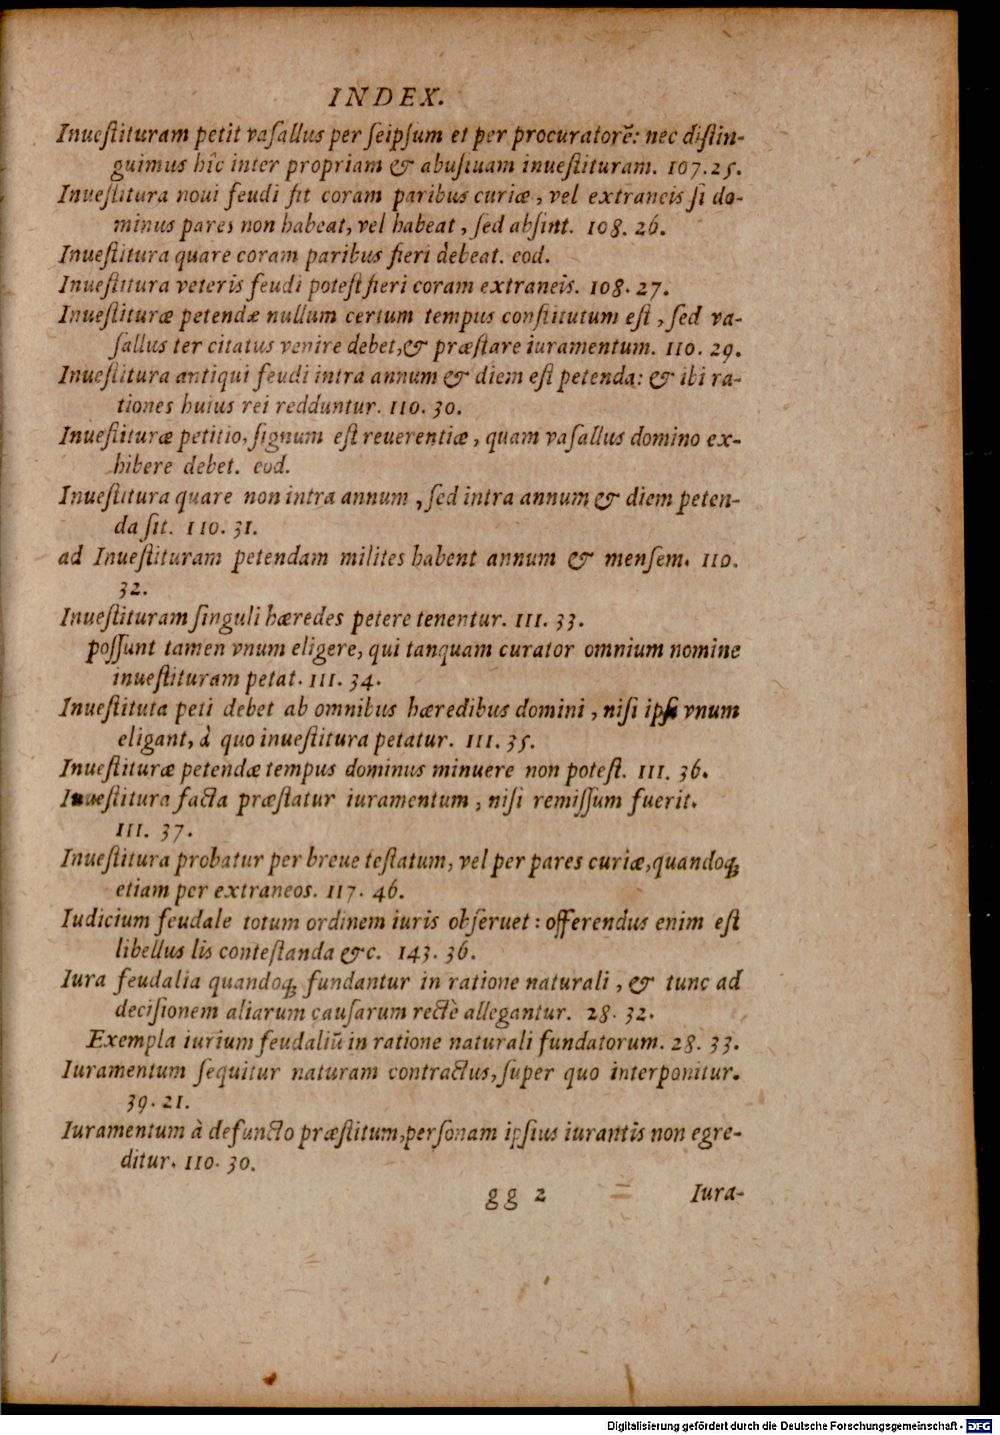 INDEX.
Inueſtituram petit vaſallus per ſeipſum et per procuratorẽ: nec diſtin-
guimus hîc inter propriam & abuſiuam inueſtituram. 107.25.
Inueſtitura noui feudi fit coram paribus curiæ, vel extraneis ſi do-
minus pares non habeat, vel habeat, ſed abſint. 108. 26.
Inueſtitura quare coram paribus fieri debeat. eod.
Inueſtitura veteris feudi poteſt fieri coram extraneis. 108. 27.
Inueſtituræ petendæ nullum certum tempus conſtitutum eſt, ſed va-
ſallus ter citatus venire debet,& præſtare iuramentum. 110. 29.
Inueſtitura antiqui feudi intra annum & diem eſt petenda: & ibi ra-
tiones huius rei redduntur. 110. 30.
Inueſtituræ petitio, ſignum eſt reuerentiæ, quam vaſallus domino ex-
hibere debet. eod.
Inueſtitura quare non intra annum, ſed intra annum & diem peten-
da ſit. 110. 31.
ad Inueſtituram petendam milites habent annum & menſem. 110.
32.
Inueſtituram ſinguli hæredes petere tenentur. 111. 33.
poſſunt tamen vnum eligere, qui tanquam curator omnium nomine
inueſtituram petat. 111. 34.
Inueſtituta peti debet ab omnibus hæredibus domini, niſi ipſi vnum
eligant, à quo inueſtitura petatur. 111. 35.
Inueſtituræ petendæ tempus dominus minuere non poteſt. 111. 36.
Inueſtitura facta præſtatur iuramentum, niſi remiſſum fuerit.
111. 37.
Inueſtitura probatur per breue teſtatum, vel per pares curiæ,quandoq;
etiam per extraneos. 117. 46.
Iudicium feudale totum ordinem iuris obſeruet: offerendus enim eſt
libellus lis conteſtanda &c. 143. 36.
Iura feudalia quandoq; fundantur in ratione naturali, & tunc ad
deciſionem aliarum cauſarum rectè allegantur. 28. 32.
Exempla iurium feudaliũ in ratione naturali fundatorum. 28. 33.
Iuramentum ſequitur naturam contractus, ſuper quo interponitur.
39. 21.
Iuramentum à defuncto præſtitum,perſonam ipſius iurantis non egre-
ditur. 110. 30.
gg 2 Iura-
Digitalisierung gefördert durch die Deutsche Forschungsgemeinschaft - DFG